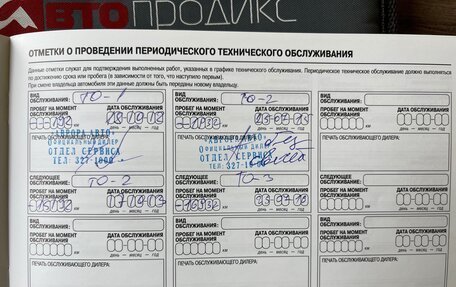 АВТОПРОДИКС
ОТМЕТКИ О ПРОВЕДЕНИИ ПЕРИОДИЧЕСКОГО ТЕХНИЧЕСКОГО ОБСЛУЖИВАНИЯ
Данные отметки служат для подтверждения выполненных работ, указанных в графике технического обслуживания. Периодическое техническое обслуживание должно выполняться
по достижению срока или пробега (в зависимости от того, что наступило первым).
При смене владельца автомобиля эти данные должны быть переданы новому владельцу.
ВИД ОБСЛУЖИВАНИЯ: ТО-1
ВИД ОБСЛУЖИВАНИЯ: ТО-2
ВИД ОБСЛУЖИВАНИЯ:
ПРОБЕГ НА МОМЕНТ ОБСЛУЖИВАНИЯ ДАТА ОБСЛУЖИВАНИЯ
ПРОБЕГ НА МОМЕНТ ОБСЛУЖИВАНИЯ ДАТА ОБСЛУЖИВАНИЯ
ПРОБЕГ НА МОМЕНТ ОБСЛУЖИВАНИЯ ДАТА ОБСЛУЖИВАНИЯ
км день — месяц — год
км день — месяц — год
км день — месяц — год
ПЕЧАТЬ ОБСЛУЖИВАЮЩЕГО ДИЛЕРА:
АВРОРА АВТО
Официальный дилер
ОТДЕЛ СЕРВИСА
ТЕЛ: 327-1000
Официальный дилер
ОТДЕЛ СЕРВИСА
СЛЕДУЮЩЕЕ ОБСЛУЖИВАНИЕ: ТО-2
СЛЕДУЮЩЕЕ ОБСЛУЖИВАНИЕ: ТО-3
СЛЕДУЮЩЕЕ ОБСЛУЖИВАНИЕ:
ПРОБЕГ НА МОМЕНТ ОБСЛУЖИВАНИЯ ДАТА ОБСЛУЖИВАНИЯ
ПРОБЕГ НА МОМЕНТ ОБСЛУЖИВАНИЯ ДАТА ОБСЛУЖИВАНИЯ
ПРОБЕГ НА МОМЕНТ ОБСЛУЖИВАНИЯ ДАТА ОБСЛУЖИВАНИЯ
км день — месяц — год
км день — месяц — год
км день — месяц — год
ВИД ОБСЛУЖИВАНИЯ:
ВИД ОБСЛУЖИВАНИЯ:
ВИД ОБСЛУЖИВАНИЯ:
ПРОБЕГ НА МОМЕНТ ОБСЛУЖИВАНИЯ ДАТА ОБСЛУЖИВАНИЯ
ПРОБЕГ НА МОМЕНТ ОБСЛУЖИВАНИЯ ДАТА ОБСЛУЖИВАНИЯ
ПРОБЕГ НА МОМЕНТ ОБСЛУЖИВАНИЯ ДАТА ОБСЛУЖИВАНИЯ
км день — месяц — год
км день — месяц — год
км день — месяц — год
ПЕЧАТЬ ОБСЛУЖИВАЮЩЕГО ДИЛЕРА:
ПЕЧАТЬ ОБСЛУЖИВАЮЩЕГО ДИЛЕРА:
ПЕЧАТЬ ОБСЛУЖИВАЮЩЕГО ДИЛЕРА: